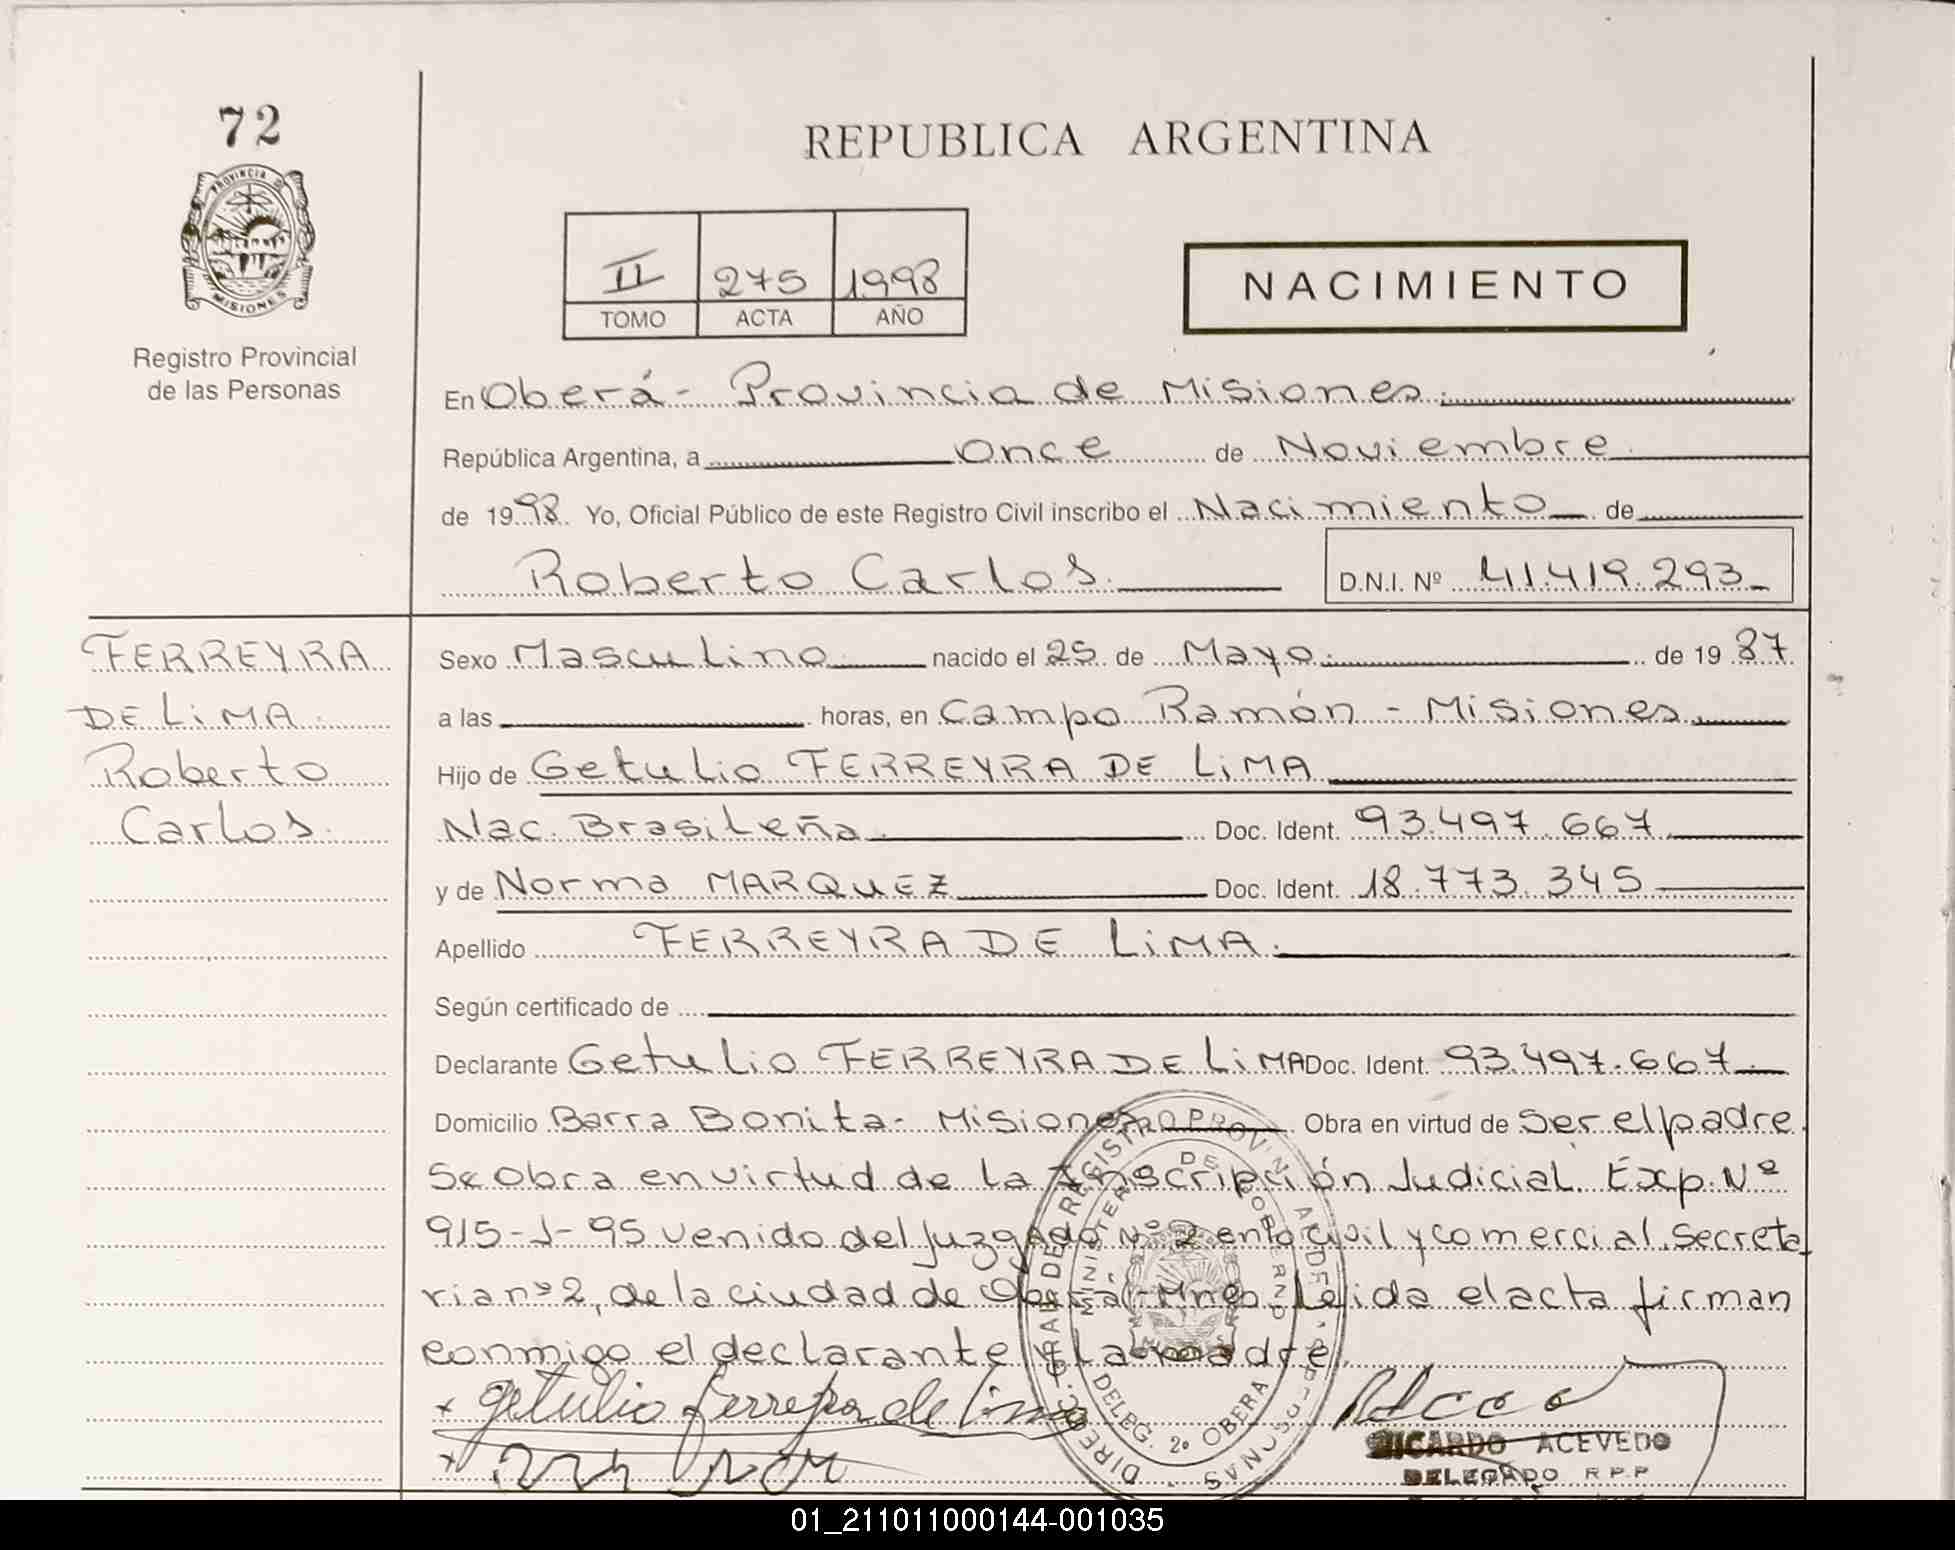 72
PROVINCIA DE
MISIONES
Registro Provincial
de las Personas
REPUBLICA ARGENTINA
II 275 1998
TOMO ACTA AÑO
NACIMIENTO
En Oberá - Provincia de Misiones.
República Argentina, a once de Noviembre
de 1998. Yo, Oficial Público de este Registro Civil inscribo el Nacimiento de
Roberto Carlos. D.N.I. Nº 41.419.293
FERREYRA
DE LiMA.
Roberto
Carlos.
Sexo Masculino nacido el 25 de Mayo. de 19 87
a las horas, en Campo Ramón - Misiones
Hijo de Getulio FERREYRA DE LiMA
Nac. Brasileña. Doc. Ident. 93.497.667
y de Norma MARQUEZ Doc. Ident. 18.773.345
Apellido FERREYRA DE LiMA.
Según certificado de
Declarante Getulio FERREYRA DE LiMA Doc. Ident. 93.497.667
Domicilio Barra Bonita - Misiones Obra en virtud de Ser el padre.
Se obra en virtud de la Inscripción Judicial. Exp. Nº
915-J-95 venido del Juzgado Nº 2 en lo civil y comercial, Secreta
ria nº 2, de la ciudad de Oberá - Mnes. Leida el acta firman
conmigo el declarante y la madre.
Getulio Ferreyra de Lima
DIREC. GRAL. DE REGISTRO PROVIN
MINISTER DE GOBIERNO
DELEG. 2º OBERA
RICARDO ACEVEDO
DELEGADO R.P.P
01_211011000144-001035